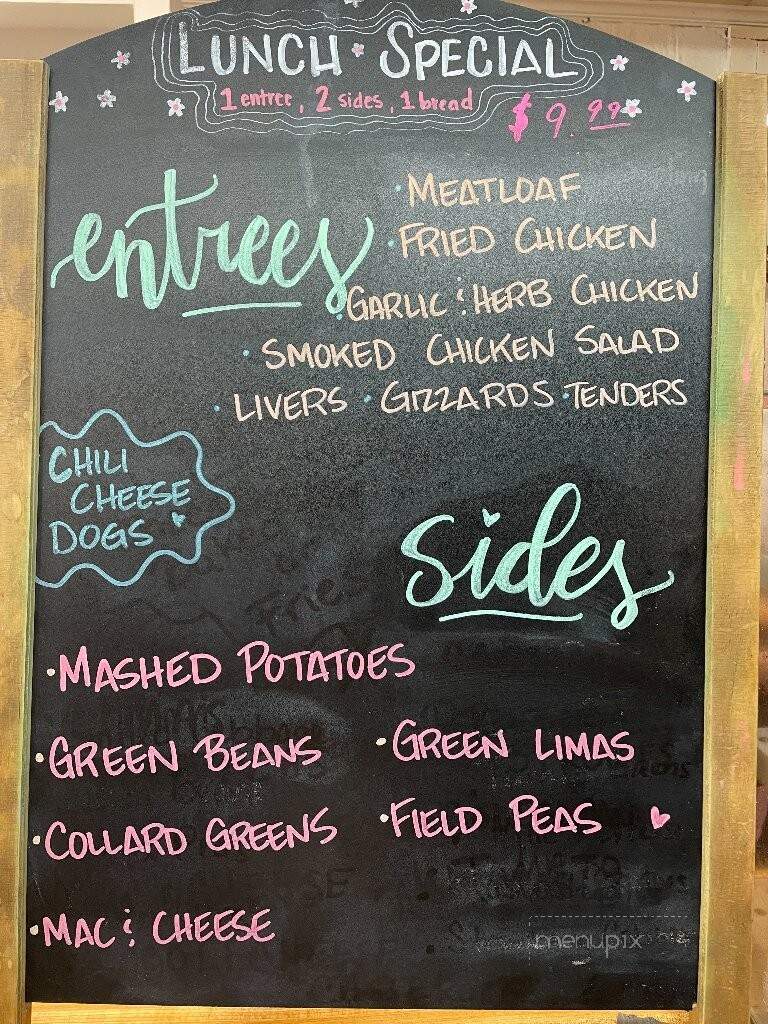 LUNCH • SPECIAL
1 entree, 2 sides, 1 bread
$9.99
entrees
• MEATLOAF
• FRIED CHICKEN
• GARLIC & HERB CHICKEN
• SMOKED CHICKEN SALAD
• LIVERS • GIZZARDS • TENDERS
CHILI
CHEESE
DOGS
sides
Fries
• MASHED POTATOES
• GREEN BEANS • GREEN LIMAS
• COLLARD GREENS • FIELD PEAS
• MAC & CHEESE
menupix